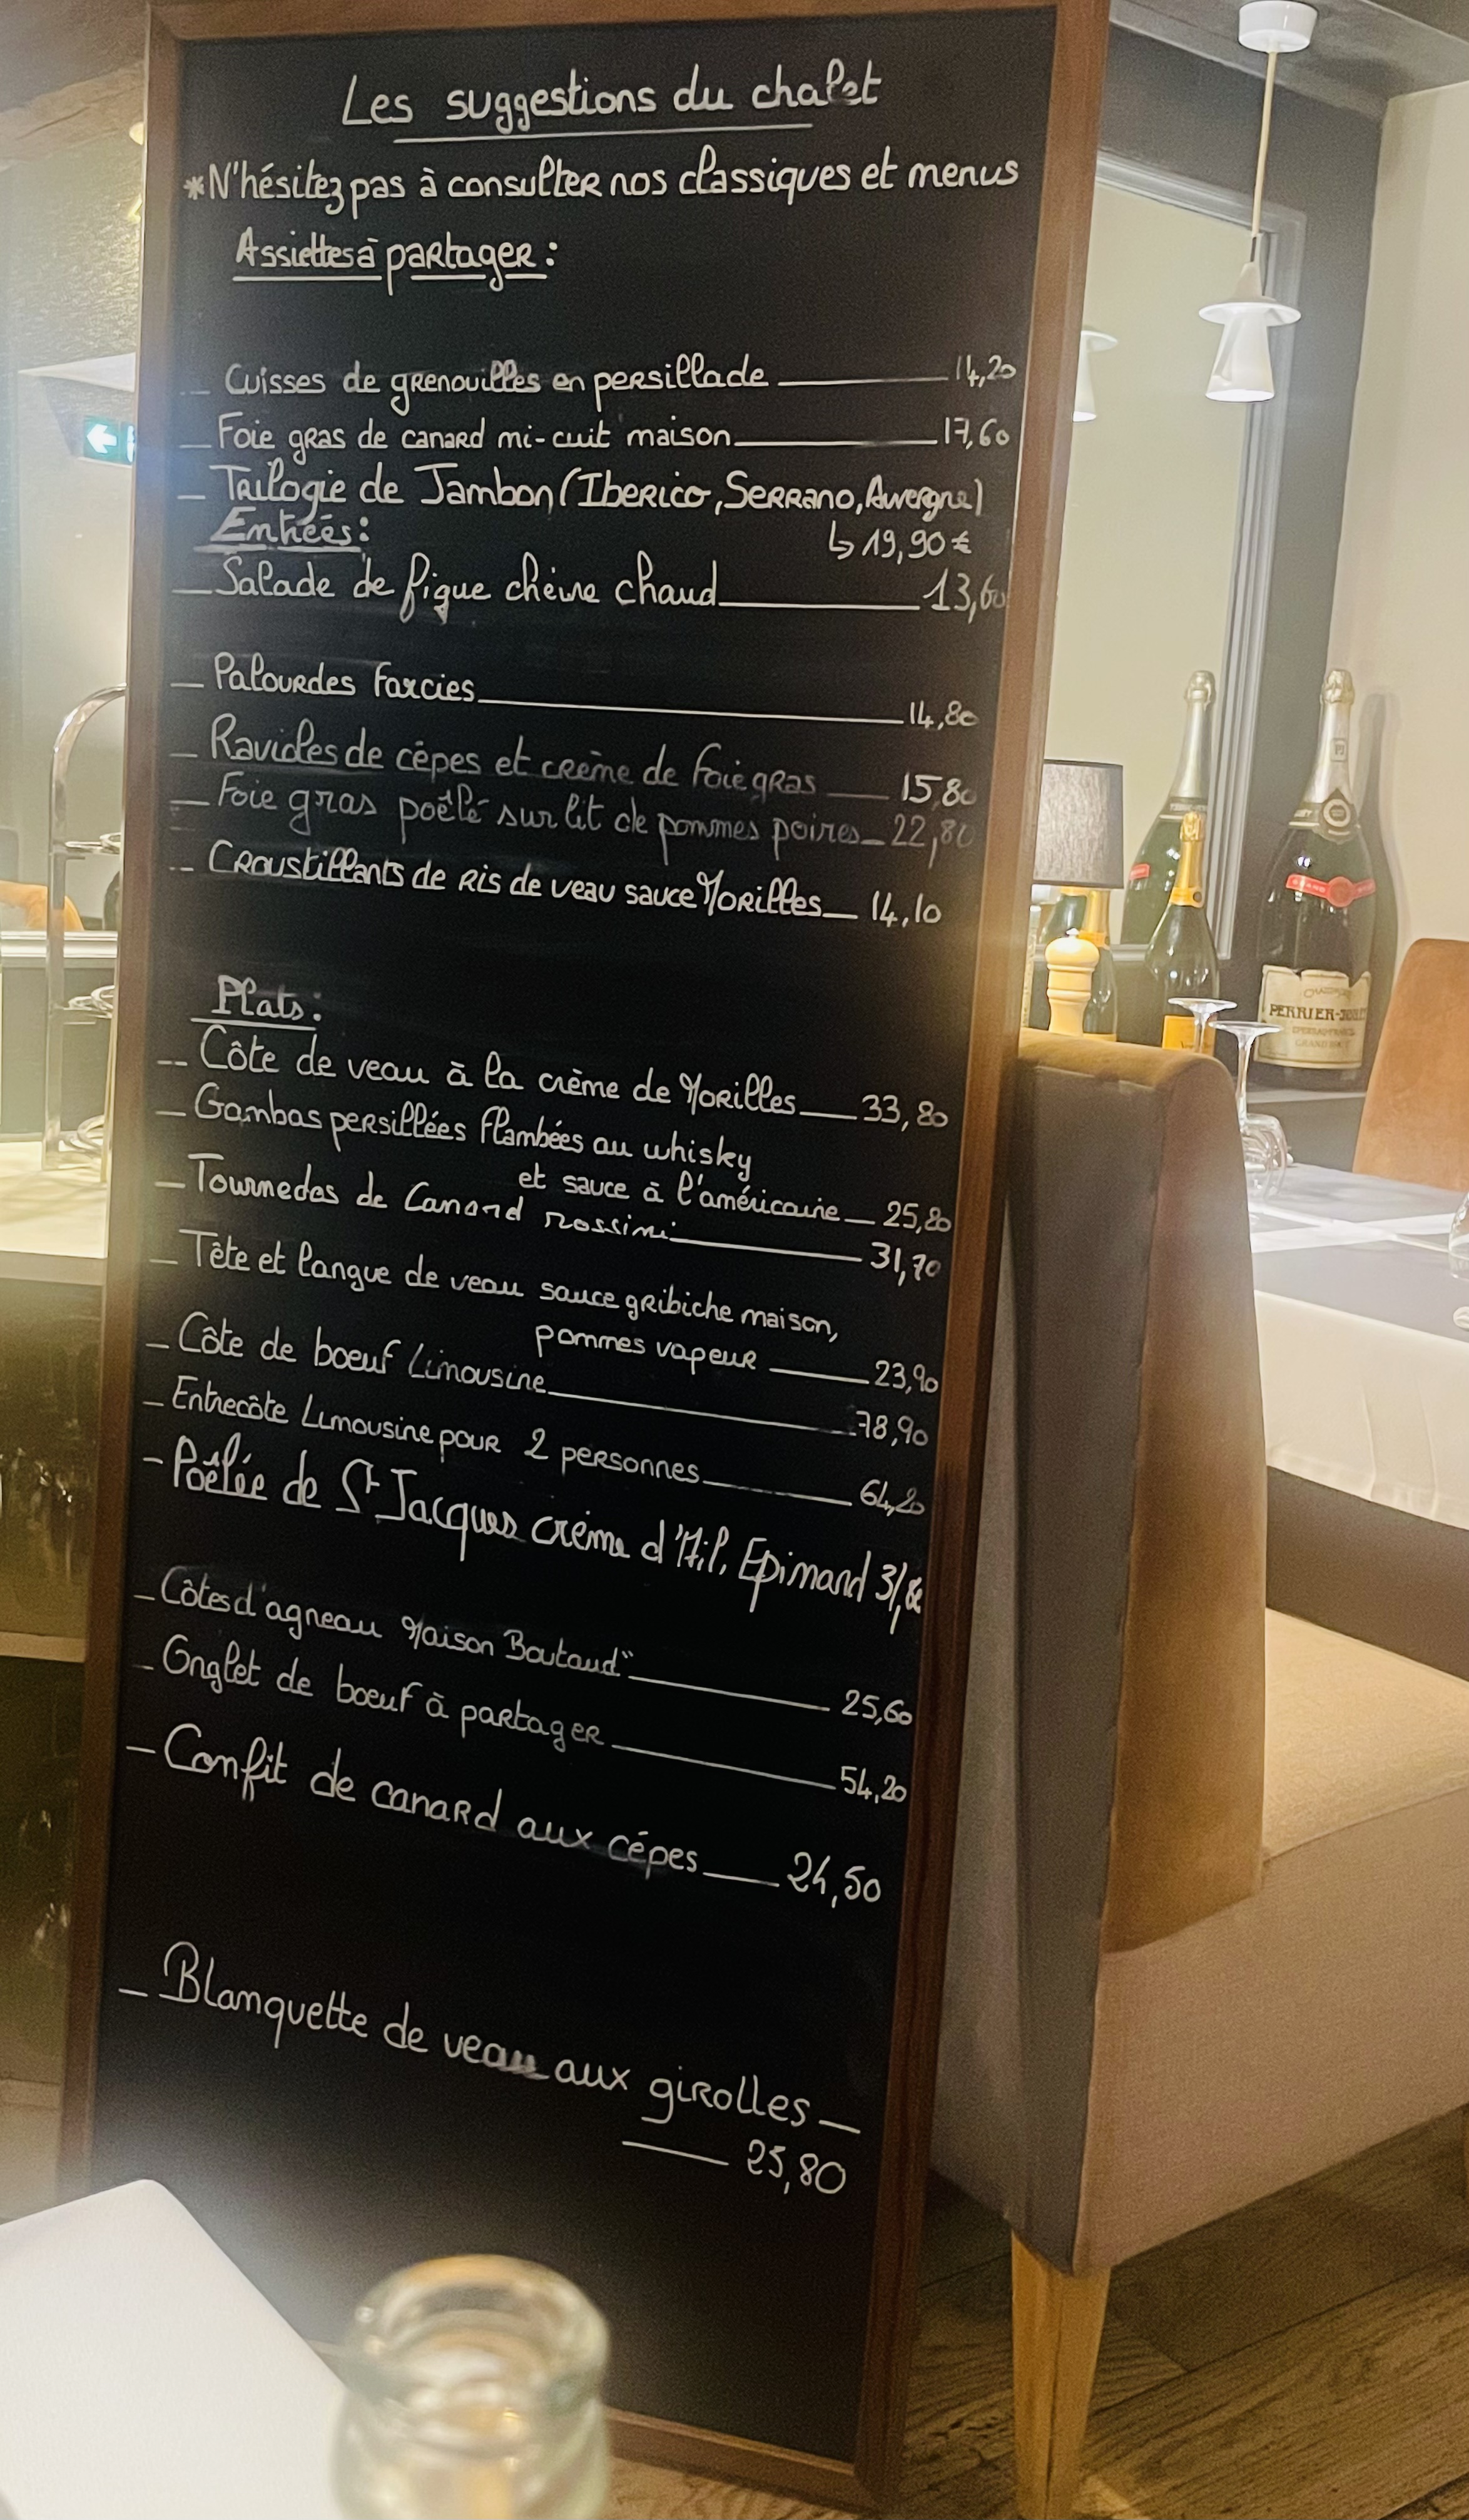 Les suggestions du chalet
*N'hésitez pas à consulter nos classiques et menus
Assiettes à partager :
_ Cuisses de grenouilles en persillade 14,20
_ Foie gras de canard mi-cuit maison 17,60
_ Trilogie de Jambon (Iberico, Serrano, Auvergne)
↳ 19,90 €
Entrées :
_ Salade de figue chèvre chaud 13,60
_ Palourdes farcies 14,80
_ Ravioles de cèpes et crème de foie gras 15,80
_ Foie gras poêlé sur lit de pommes poires 22,80
_ Croustillants de Ris de veau sauce Morilles 14,10
Plats :
_ Côte de veau à la crème de Morilles 33,80
_ Gambas persillées flambées au whisky
et sauce à l'américaine 25,80
_ Tournedos de Canard rossini 31,70
_ Tête et langue de veau sauce gribiche maison,
pommes vapeur 23,90
_ Côte de boeuf Limousine 78,90
_ Entrecôte Limousine pour 2 personnes 64,20
- Poêlée de St Jacques crème d'Ail, Epinard
_ Côtes d'agneau Maison Boutaud" 25,60
_ Onglet de boeuf à partager 54,20
- Confit de canard aux cépes 24,50
_ Blanquette de veau aux girolles
25,80
PERRIER-JOUËT